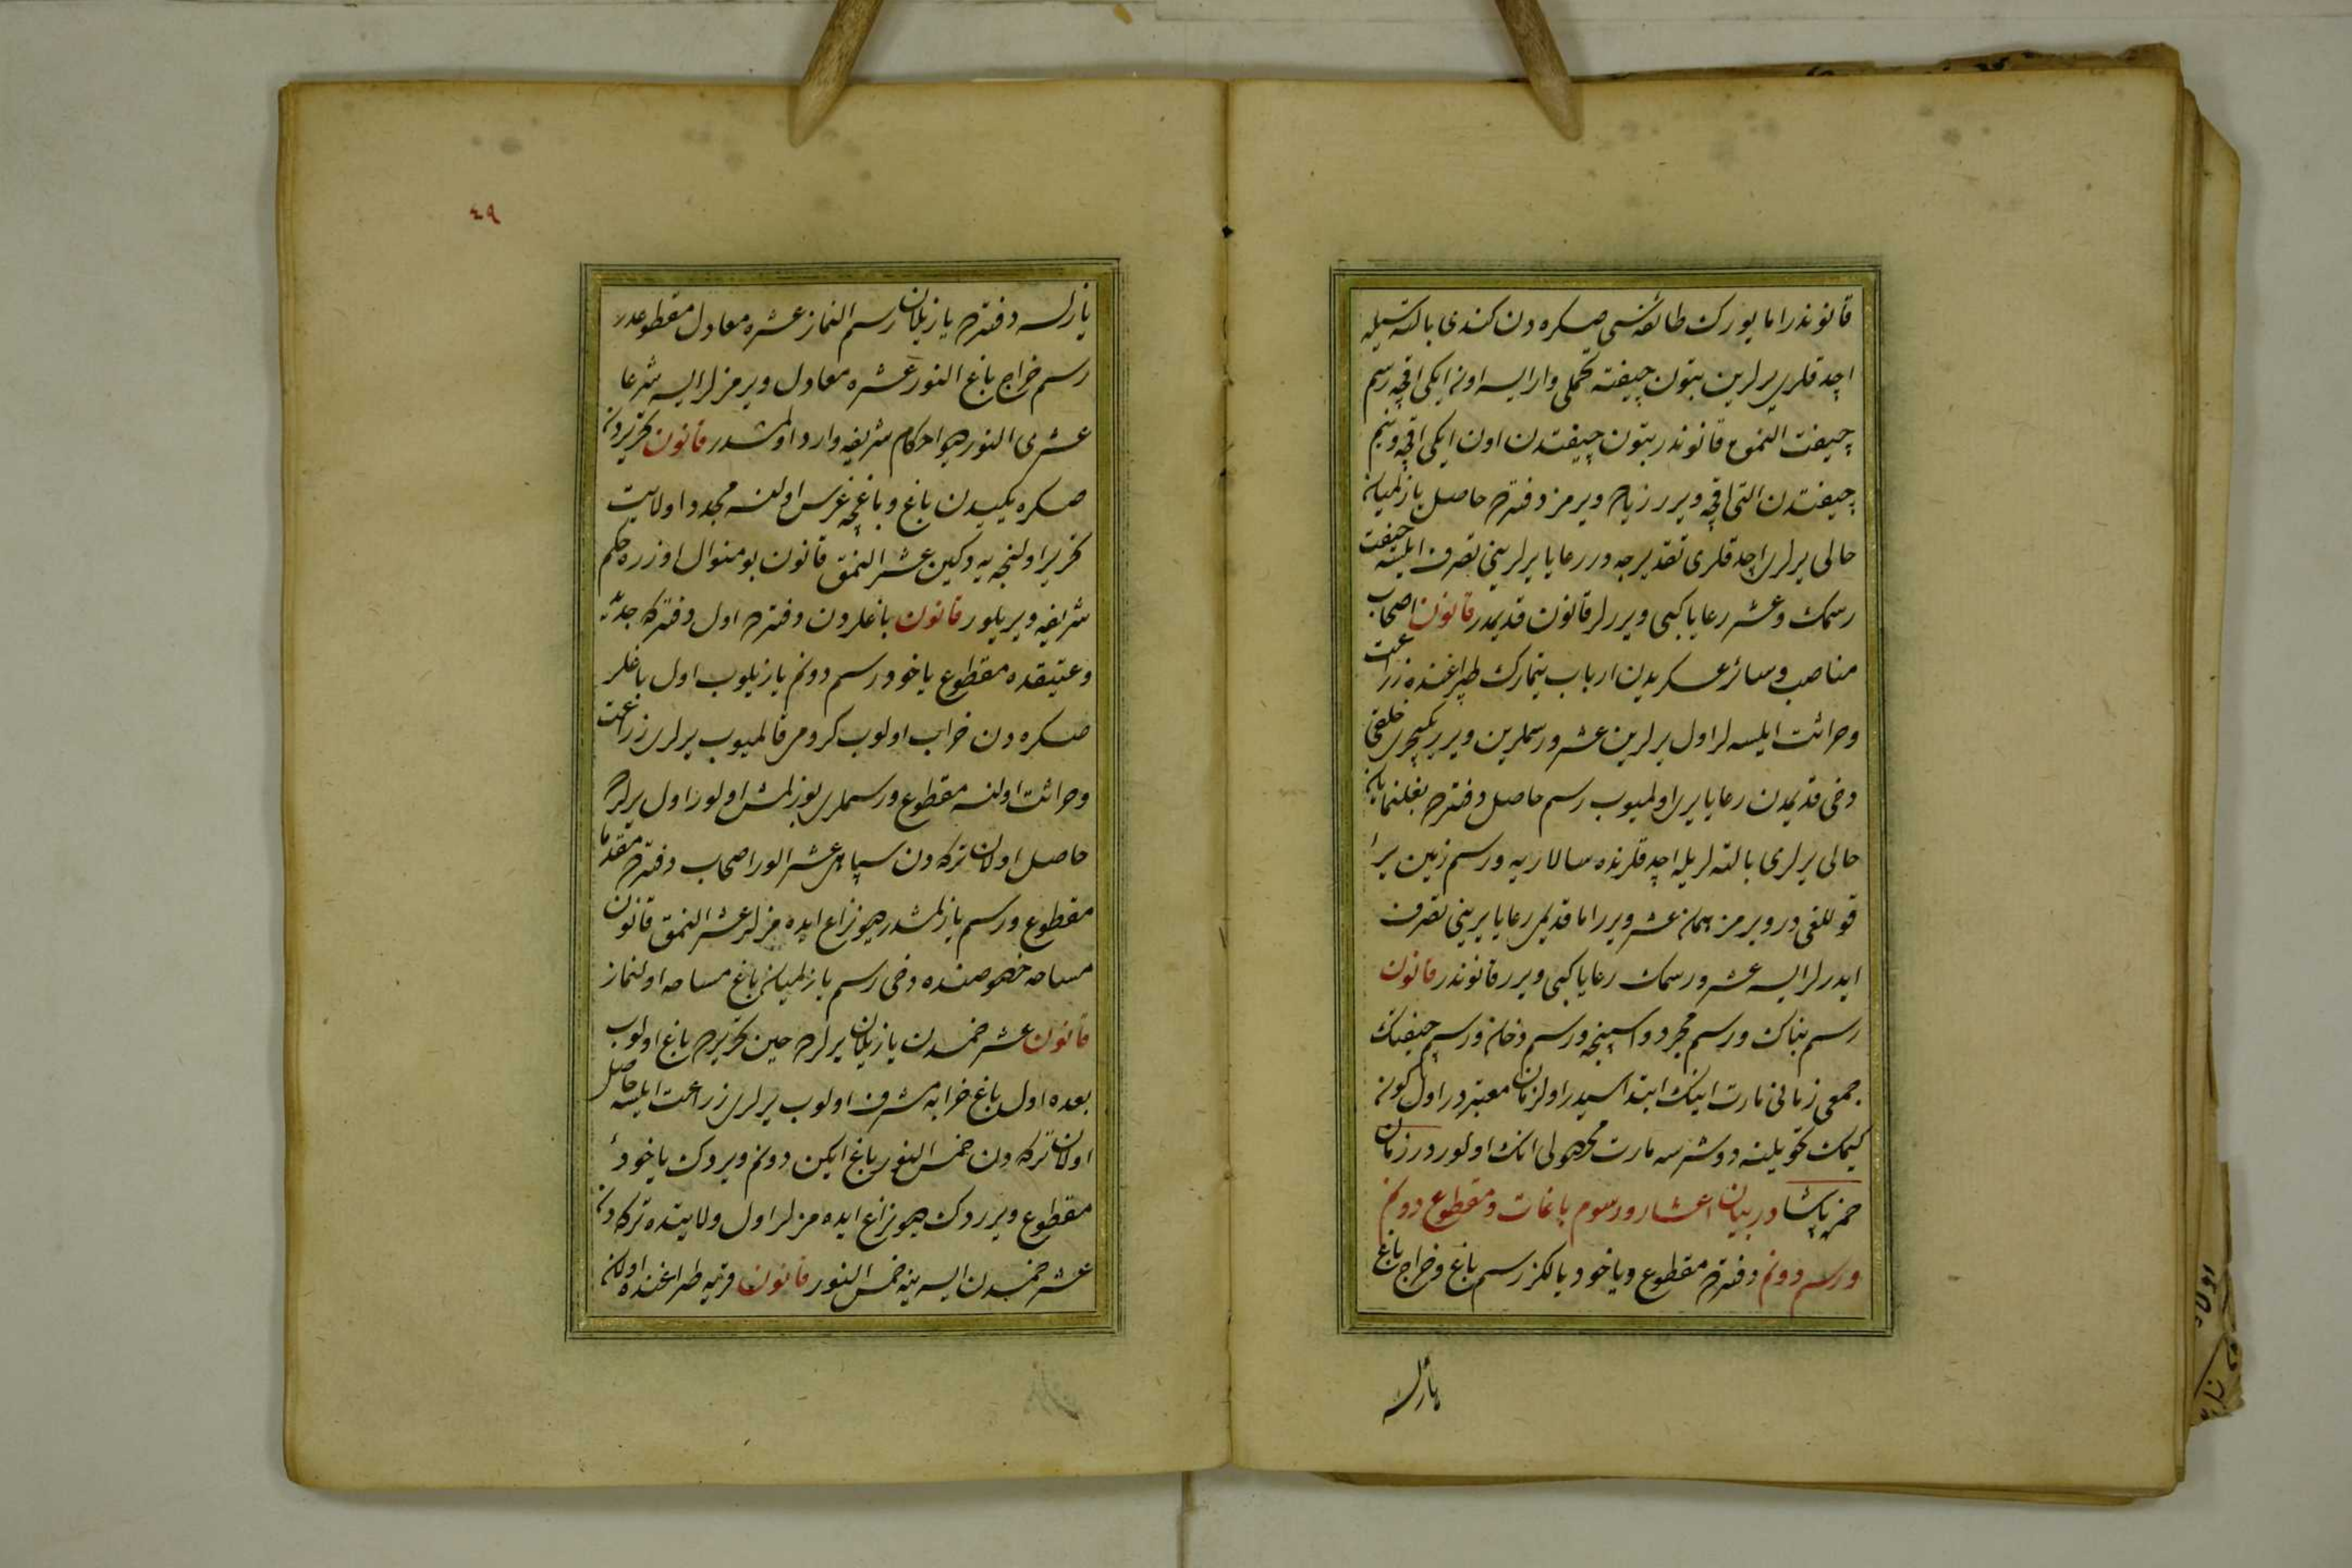 قانوندر اما یورك طائفه‌سی صكره دن كندی بالته‌سیله
اچدقلری یرلرین بتون چیفته تحملی وار ایسه اون ایكی اقچه رسم
چیفت النمق قانوندر بتون چیفتدن اون ایكی اقچه ونیم
چیفتدن التی اقچه ویرر زیاده ویرمز دفترده حاصل یازلمیان
خالی یرلری اچدقلری تقدیرجه در رعایا یرلرینی تصرف ایلسه چیفت
رسمك وعشر رعایا كبی ویررلر قانون قدیمدر قانون اصحاب
مناصب وسائر عسكریدن ارباب تیمارك طپراغنده زراعت
وحراثت ایلسه‌لر اول یرلرین عشر ورسملرین ویرر یكیچری خلقی
دخی قدیمدن رعایا یری اولمیوب رسم حاصل دفترده بغلنمایان
خالی یرلری بالته‌لریله اچدقلرنده سالاریه ورسم زمین یرا
قوللغی در ویرمز همان عشر ویرر اما قدیمی رعایا یرینی تصرف
ایدرلر ایسه عشر ورسمك رعایا كبی ویرر قانوندر قانون
رسم بناك ورسم مجرد واسپنجه ورسم دخان ورسم چیفتك
جمعی زمانی مارت اینك ابتداسیدر اول زمان معتبردر اول كون
كیمك تحویلنه دوشرسه مارت محصولی انك اولور در زمان
حمزه پاشا در بیان اعشار ورسوم باغات ومقطوع دونم
ورسم دونم دفترده مقطوع ویاخود یالكز رسم باغ وخراج باغ
یازلسه
٤٩
یازلسه دفترده یازیلان رسم النماز عشره معادل مقطوعدر
رسم خراج باغ النور عشره معادل ویرمزلر ایسه شرعا
عشری النور دیو احكام شریفه وارد اولمشدر قانون تحریردن
صكره یكیدن باغ وباغچه غرس اولنسه مجددا ولایت
تحریر اولنجه‌یه دكین عشر النمق قانون بو منوال اوزره حكم
شریفه ویریلور قانون باغلردن دفترده اول دفتركه جدید
وعتیقده مقطوع یاخود رسم دونم یازیلوب اول باغلر
صكره دن خراب اولوب كروم قالمیوب یرلری زراعت
وحراثت اولنسه مقطوع ورسملری بوزلمش اولور اول یرلرده
حاصل اولان تركه دن سپاهی عشر الور اصحاب دفترده مقدما
مقطوع ورسم یازلمشدر دیو نزاع ایده مزلر عشر النمق قانون
مساحه خصوصنده دخی رسم یازلمیان باغ مساحه اولنماز
قانون عشر خمسدن یازیلان یرلرده حین تحریرده باغ اولوب
بعده اول باغ خرابه مشرف اولوب یرلری زراعت ایلسه حاصل
اولان تركه دن خمس النور باغ ایكن دونم ویردك یاخود
مقطوع ویرردك دیو نزاع ایده مزلر اول ولایتده تركه دن
عشر خمسدن ایسه ینه خمس النور قانون قریه طپراغنده اولان